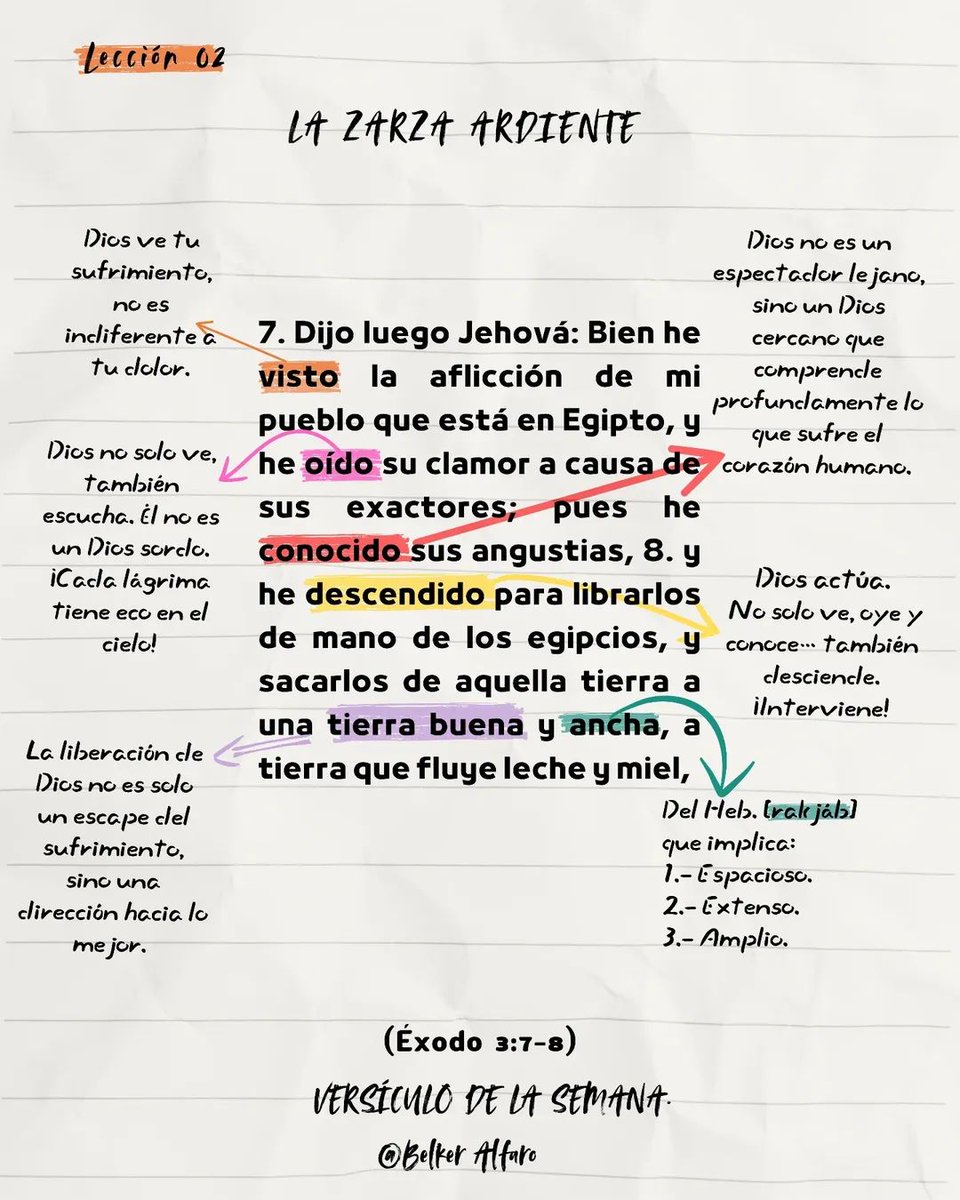 Lección 02
LA ZARZA ARDIENTE
Dios ve tu
sufrimiento,
no es
indiferente a
tu dolor.
Dios no solo ve,
también
escucha. Él no es
un Dios sordo.
¡Cada lágrima
tiene eco en el
cielo!
La liberación de
Dios no es solo
un escape del
sufrimiento,
sino una
dirección hacia lo
mejor.
7. Dijo luego Jehová: Bien he
visto la aflicción de mi
pueblo que está en Egipto, y
he oído su clamor a causa de
sus exactores; pues he
conocido sus angustias, 8. y
he descendido para librarlos
de mano de los egipcios, y
sacarlos de aquella tierra a
una tierra buena y ancha, a
tierra que fluye leche y miel,
Dios no es un
espectador lejano,
sino un Dios
cercano que
comprende
profundamente lo
que sufre el
corazón humano.
Dios actúa.
No solo ve, oye y
conoce... también
desciende.
¡Interviene!
Del Heb. [rak jáb]
que implica:
1.- Espacioso.
2.- Extenso.
3.- Amplio.
(Éxodo 3:7-8)
VERSÍCULO DE LA SEMANA.
@Belker Alfaro